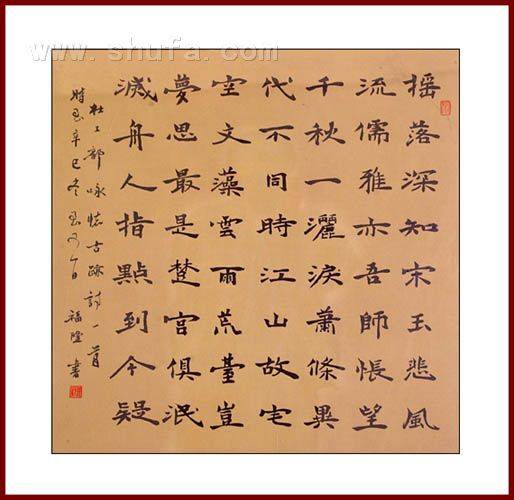 www.shufa.com
搖落深知宋玉悲風
流儒雅亦吾師悵望
千秋一灑淚蕭條異
代不同時江山故宅
空文藻雲雨荒臺豈
夢思最是楚宮俱泯
滅舟人指點到今疑
杜工部咏懷古跡詩一首
時辛巳冬月 福 書